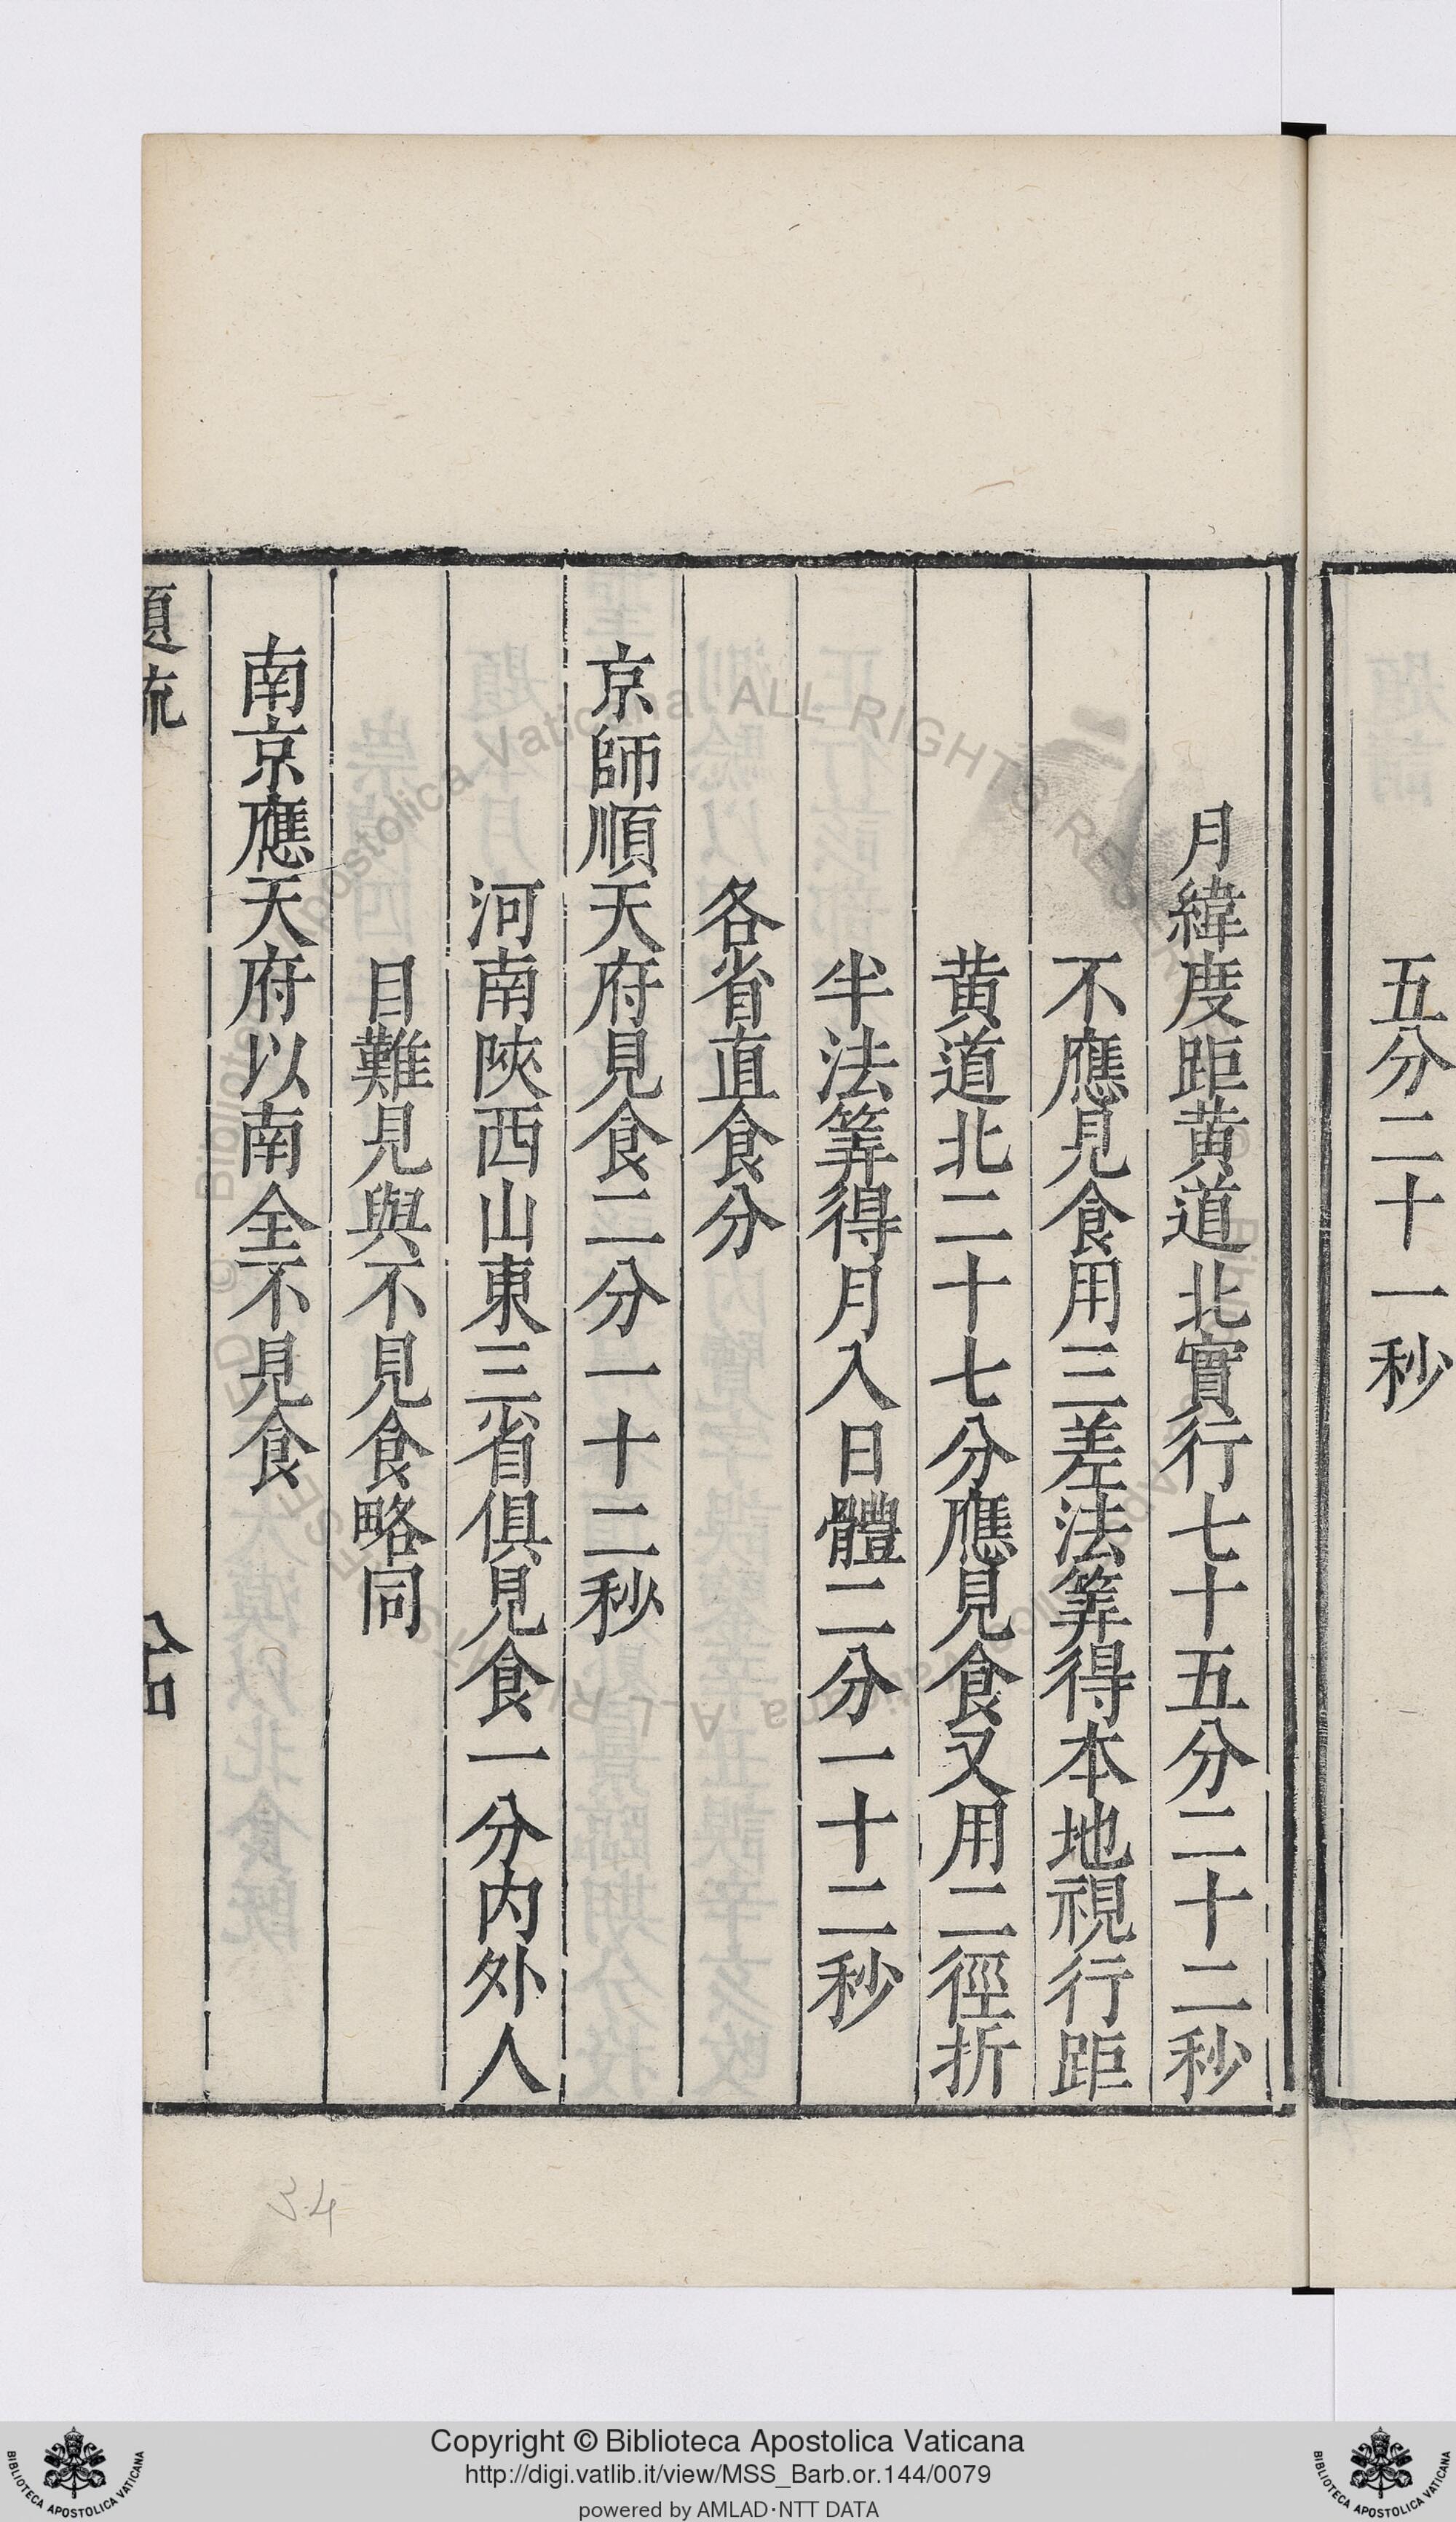 五分二十一秒
月緯度距黄道北實行七十五分二十二秒
不應見食用三差法筭得本地視行距
黄道北二十七分應見食又用二徑折
半法筭得月入日體二分一十二秒
各省直食分
京師順天府見食二分一十二秒
河南陝西山東三省俱見食一分内外人
目難見與不見食略同
南京應天府以南全不見食
34
Copyright © Biblioteca Apostolica Vaticana
http://digi.vatlib.it/view/MSS_Barb.or.144/0079
powered by AMLAD·NTT DATA
BIBLIOTECA APOSTOLICA VATICANA
BIBLIOTECA APOSTOLICA VATICANA